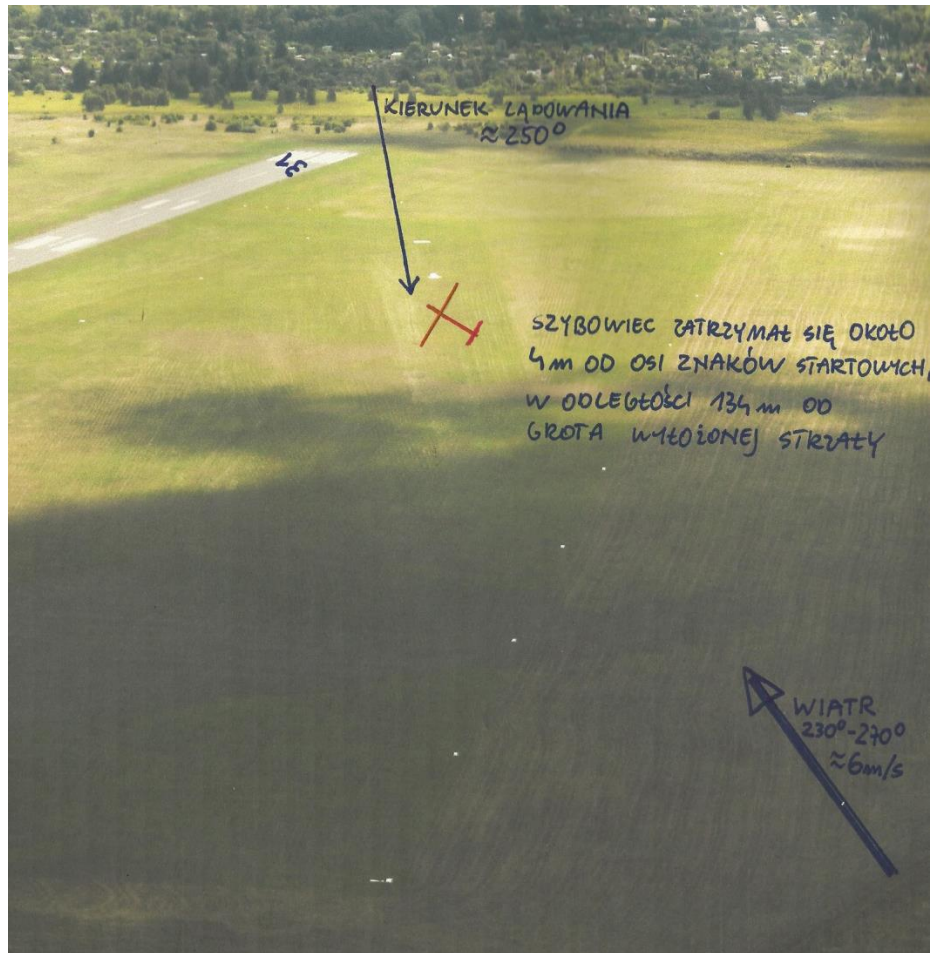 KIERUNEK LĄDOWANIA
≈ 250°
31
SZYBOWIEC ZATRZYMAŁ SIĘ OKOŁO
4m OD OSI ZNAKÓW STARTOWYCH,
W ODLEGŁOŚCI 134 m OD
GROTA WYŁOŻONEJ STRZAŁY
WIATR
230°-270°
≈6m/s